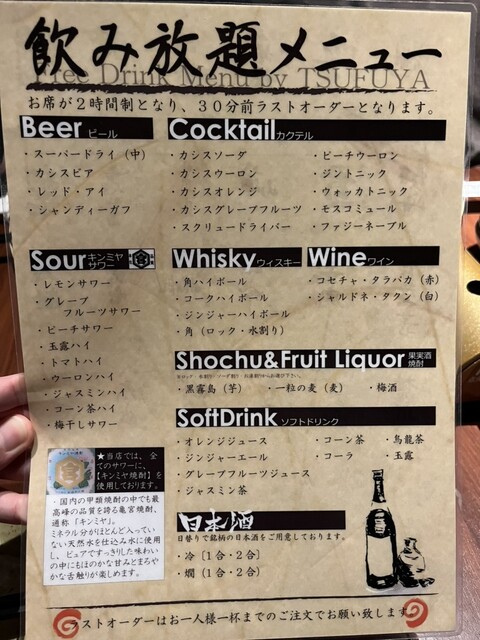 飲み放題メニュー
Free Drink Menu by TSUFUYA
お席が２時間制となり、３０分前ラストオーダーとなります。
Beer ビール
・スーパードライ（中）
・カシスビア
・レッド・アイ
・シャンディーガフ
Cocktail カクテル
・カシスソーダ
・カシスウーロン
・カシスオレンジ
・カシスグレープフルーツ
・スクリュードライバー
・ピーチウーロン
・ジントニック
・ウォッカトニック
・モスコミュール
・ファジーネーブル
Sour キンミヤサワー
・レモンサワー
・グレープ
フルーツサワー
・ピーチサワー
・玉露ハイ
・トマトハイ
・ウーロンハイ
・ジャスミンハイ
・コーン茶ハイ
・梅干しサワー
Whisky ウィスキー
・角ハイボール
・コークハイボール
・ジンジャーハイボール
・角（ロック・水割り）
Wine ワイン
・コセチャ・タラパカ（赤）
・シャルドネ・タクン（白）
Shochu&Fruit Liquor 果実酒 焼酎
・黒霧島（芋）　・一粒の麦（麦）　・梅酒
SoftDrink ソフトドリンク
・オレンジジュース
・ジンジャーエール
・グレープフルーツジュース
・ジャスミン茶
・コーン茶
・コーラ
・烏龍茶
・玉露
日本酒
日替りで銘柄の日本酒をご用意しております。
・冷［1合・2合］
・燗［1合・2合］
★当店では、全
てのサワーに、
【キンミヤ焼酎】を
使用しております。
・国内の甲類焼酎の中でも最
高峰の品質を誇る亀宮焼酎、
通称「キンミヤ」。
ミネラル分がほとんど入ってい
ない天然水を仕込み水に使用
し、ピュアですっきりした味わい
の中にもほのかな甘みとまろや
かな舌触りが楽しめます。
ラストオーダーはお一人様一杯までのご注文でお願い致します。